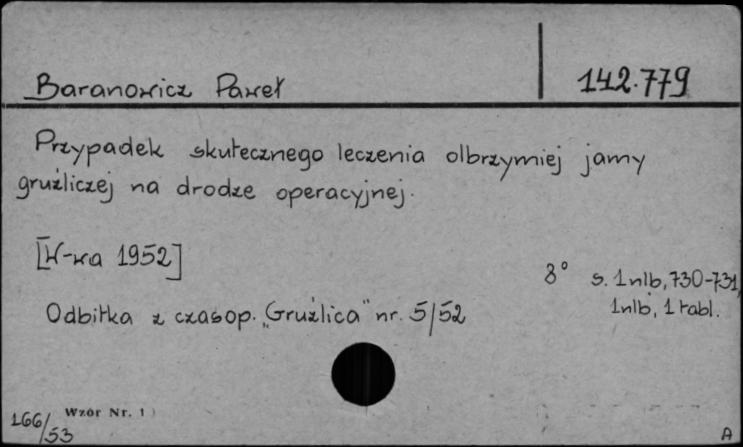 Baranowicz Paweł
142.779
Przypadek skutecznego leczenia olbrzymiej jamy
gruźliczej na drodze operacyjnej.
[W-wa 1952]
8° s. 1nlb, 730-731,
1nlb, 1 tabl.
Odbitka z czasop. „Gruźlica" nr. 5/52
166/53
Wzór Nr. 1
A